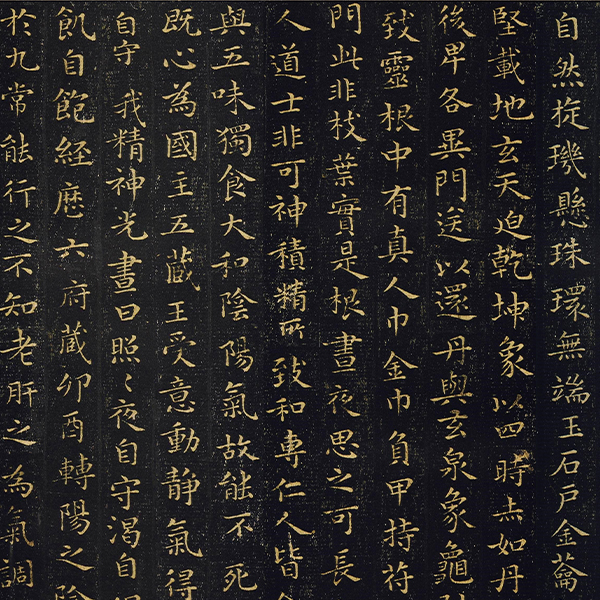 自然旋璣懸珠環無端玉石戶金蘥
堅載地玄天迫乾坤象以四時赤如丹
後卑各異門送以還丹與玄泉象龜
致靈根中有真人巾金巾負甲持符
門此非枝葉實是根晝夜思之可長
人道士非可神積精所致和專仁人皆
與五味獨食大和陰陽氣故能不死
既心為國主五藏王受意動靜氣得
自守我精神光晝日照々夜自守渴自
飢自飽經歷六府藏卯酉轉陽之陰
於九常能行之不知老肝之為氣調